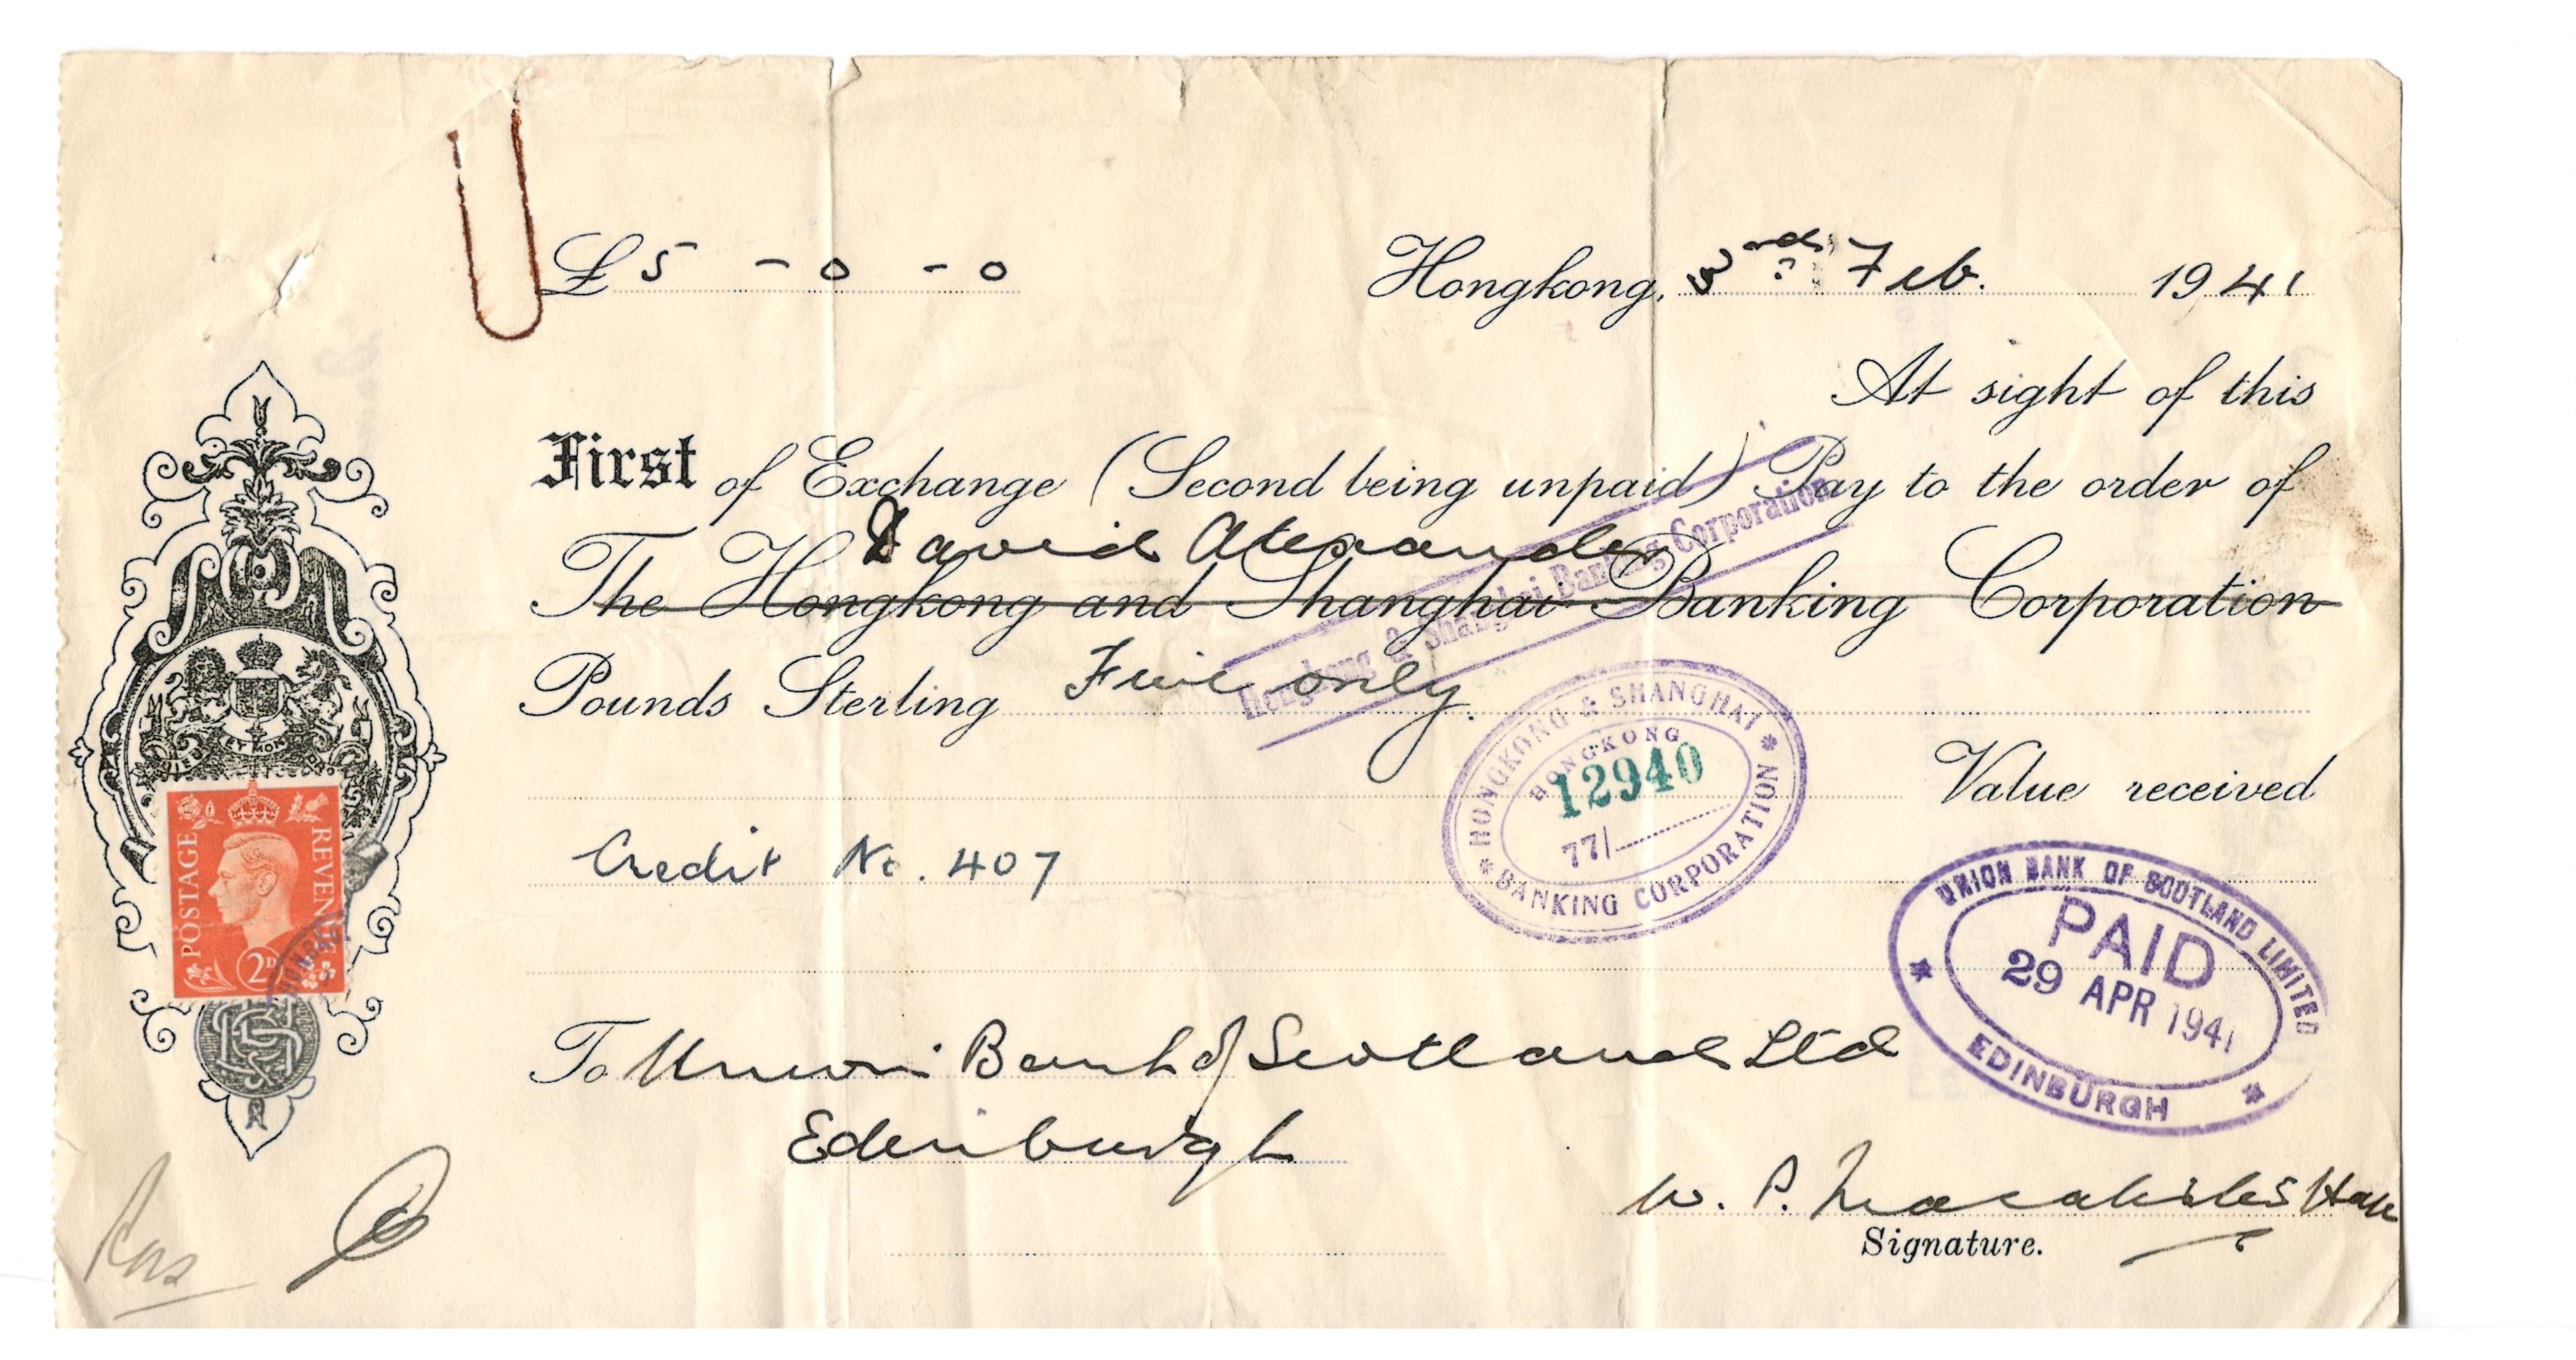 £ 5 - 0 - 0
Hongkong, 3rd Feb. 1941
At sight of this
First of Exchange (Second being unpaid) Pay to the order of
David Alexander
The Hongkong and Shanghai Banking Corporation
Hongkong & Shanghai Banking Corporation
Pounds Sterling Five only.
HONGKONG & SHANGHAI BANKING CORPORATION
HONGKONG
12940
77/
Value received
Credit No. 407
POSTAGE REVENUE
2D
HONGKONG
UNION BANK OF SCOTLAND LIMITED
PAID
29 APR 1941
EDINBURGH
To Union Bank of Scotland Ltd
Edinburgh
W. P.
Signature.